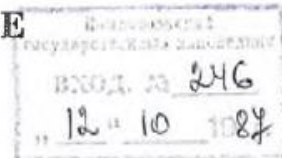 Е
государственный заповедник
ВХОД. № 246
„ 12 " 10 1987